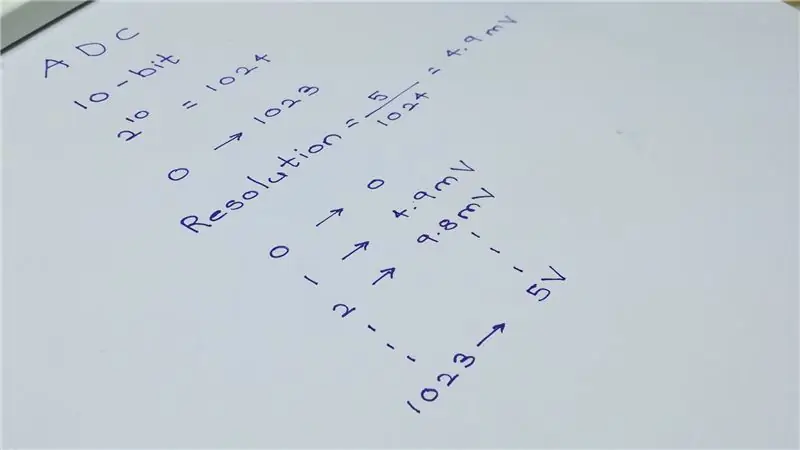 ADC
10-bit
2¹⁰ = 1024
0 → 1023
Resolution = 5/1024 = 4.9mV
0 → 0
1 → 4.9mV
2 → 9.8mV
1023 → 5V